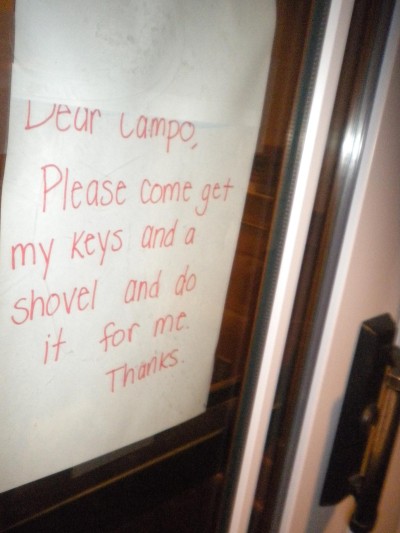 Dear Campo,
Please come get
my keys and a
shovel and do
it for me.
Thanks.